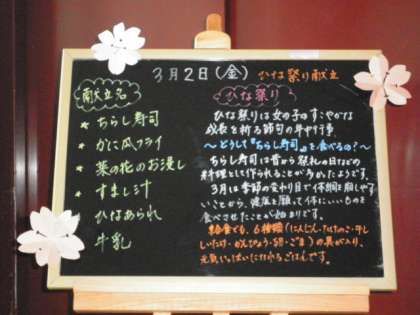 3月2日(金) ひな祭り献立
献立名
★ ちらし寿司
★ かに爪フライ
★ 菜の花のお浸し
★ すまし汁
ひなあられ
牛乳
ひな祭り
ひな祭りは女の子のすこやかな
成長を祈る節句の年中行事。
～どうして『ちらし寿司』を食べるの？～
ちらし寿司は昔から祭礼の日などの
料理として作られることが多かったようです。
3月は季節の変わり目で体調を崩しや
すいことから、健康を願って体にいいものを
食べさせたことが始まりです。
給食でも、6種類(にんじん・たけのこ・干し
しいたけ・かんぴょう・卵・ごま)の具が入り、
元気いっぱいになれるごはんです。